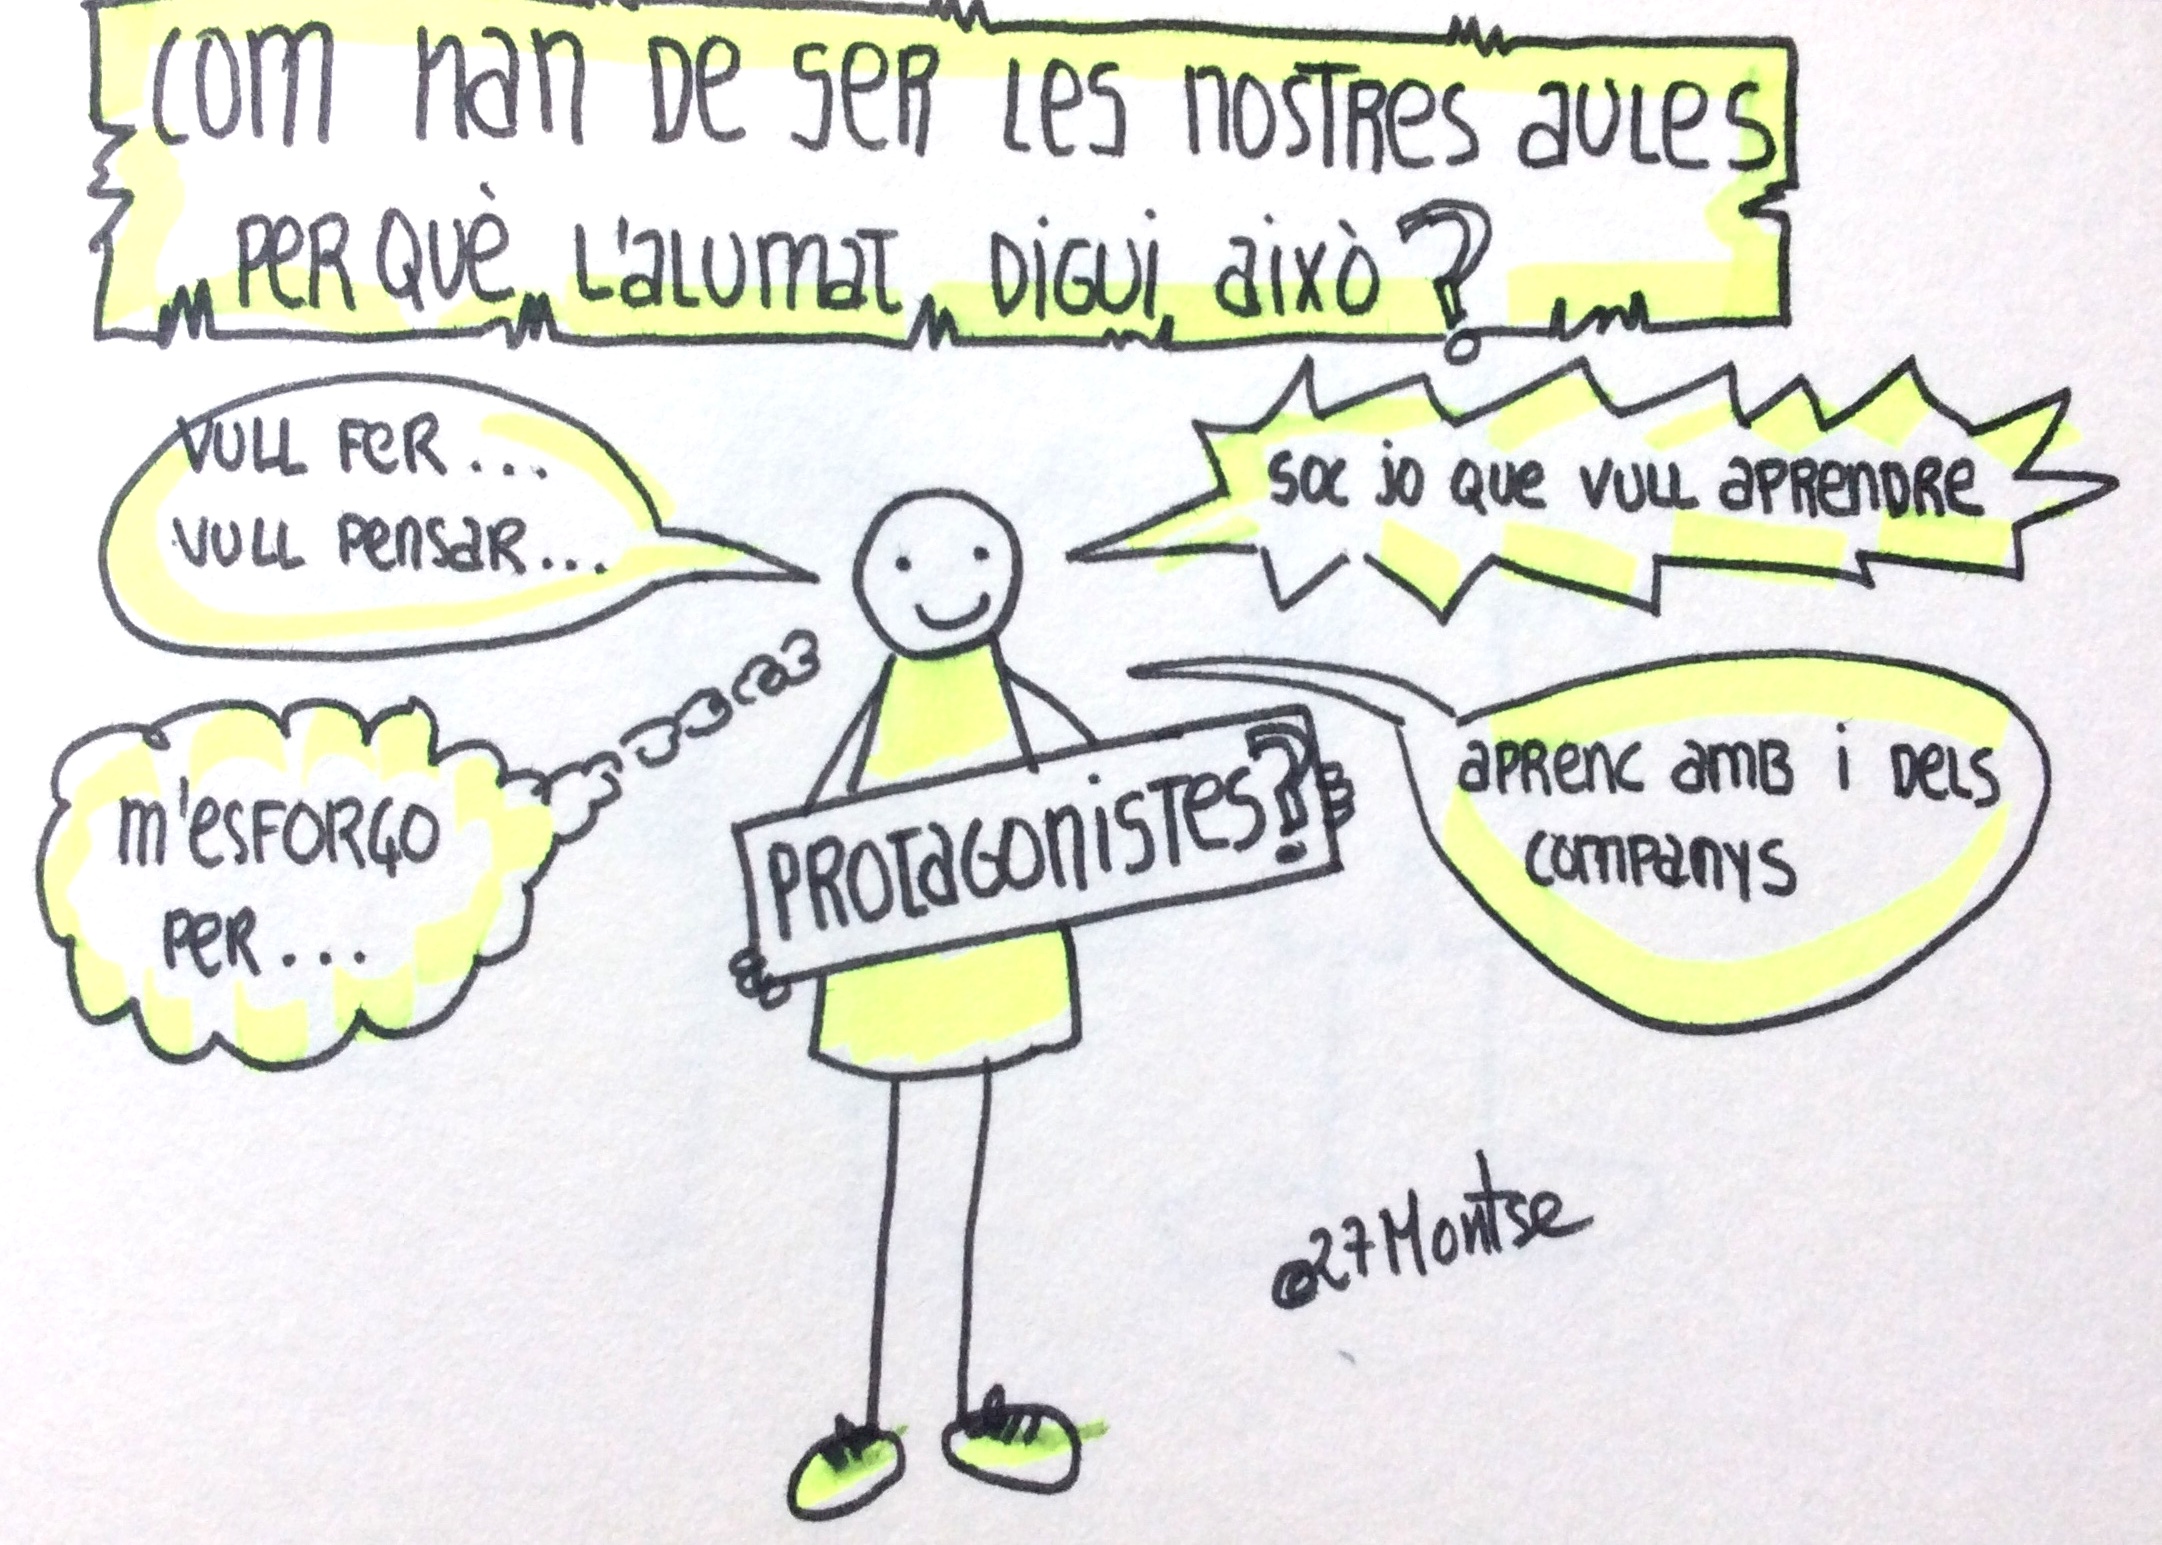 COM HAN DE SER LES NOSTRES AULES
PER QUÈ L'ALUMAT DIGUI AIXÒ?
VULL FER...
VULL PENSAR...
SOC JO QUE VULL APRENDRE
M'ESFORÇO
PER...
PROTAGONISTES?
APRENC AMB I DELS
COMPANYS
@27Montse